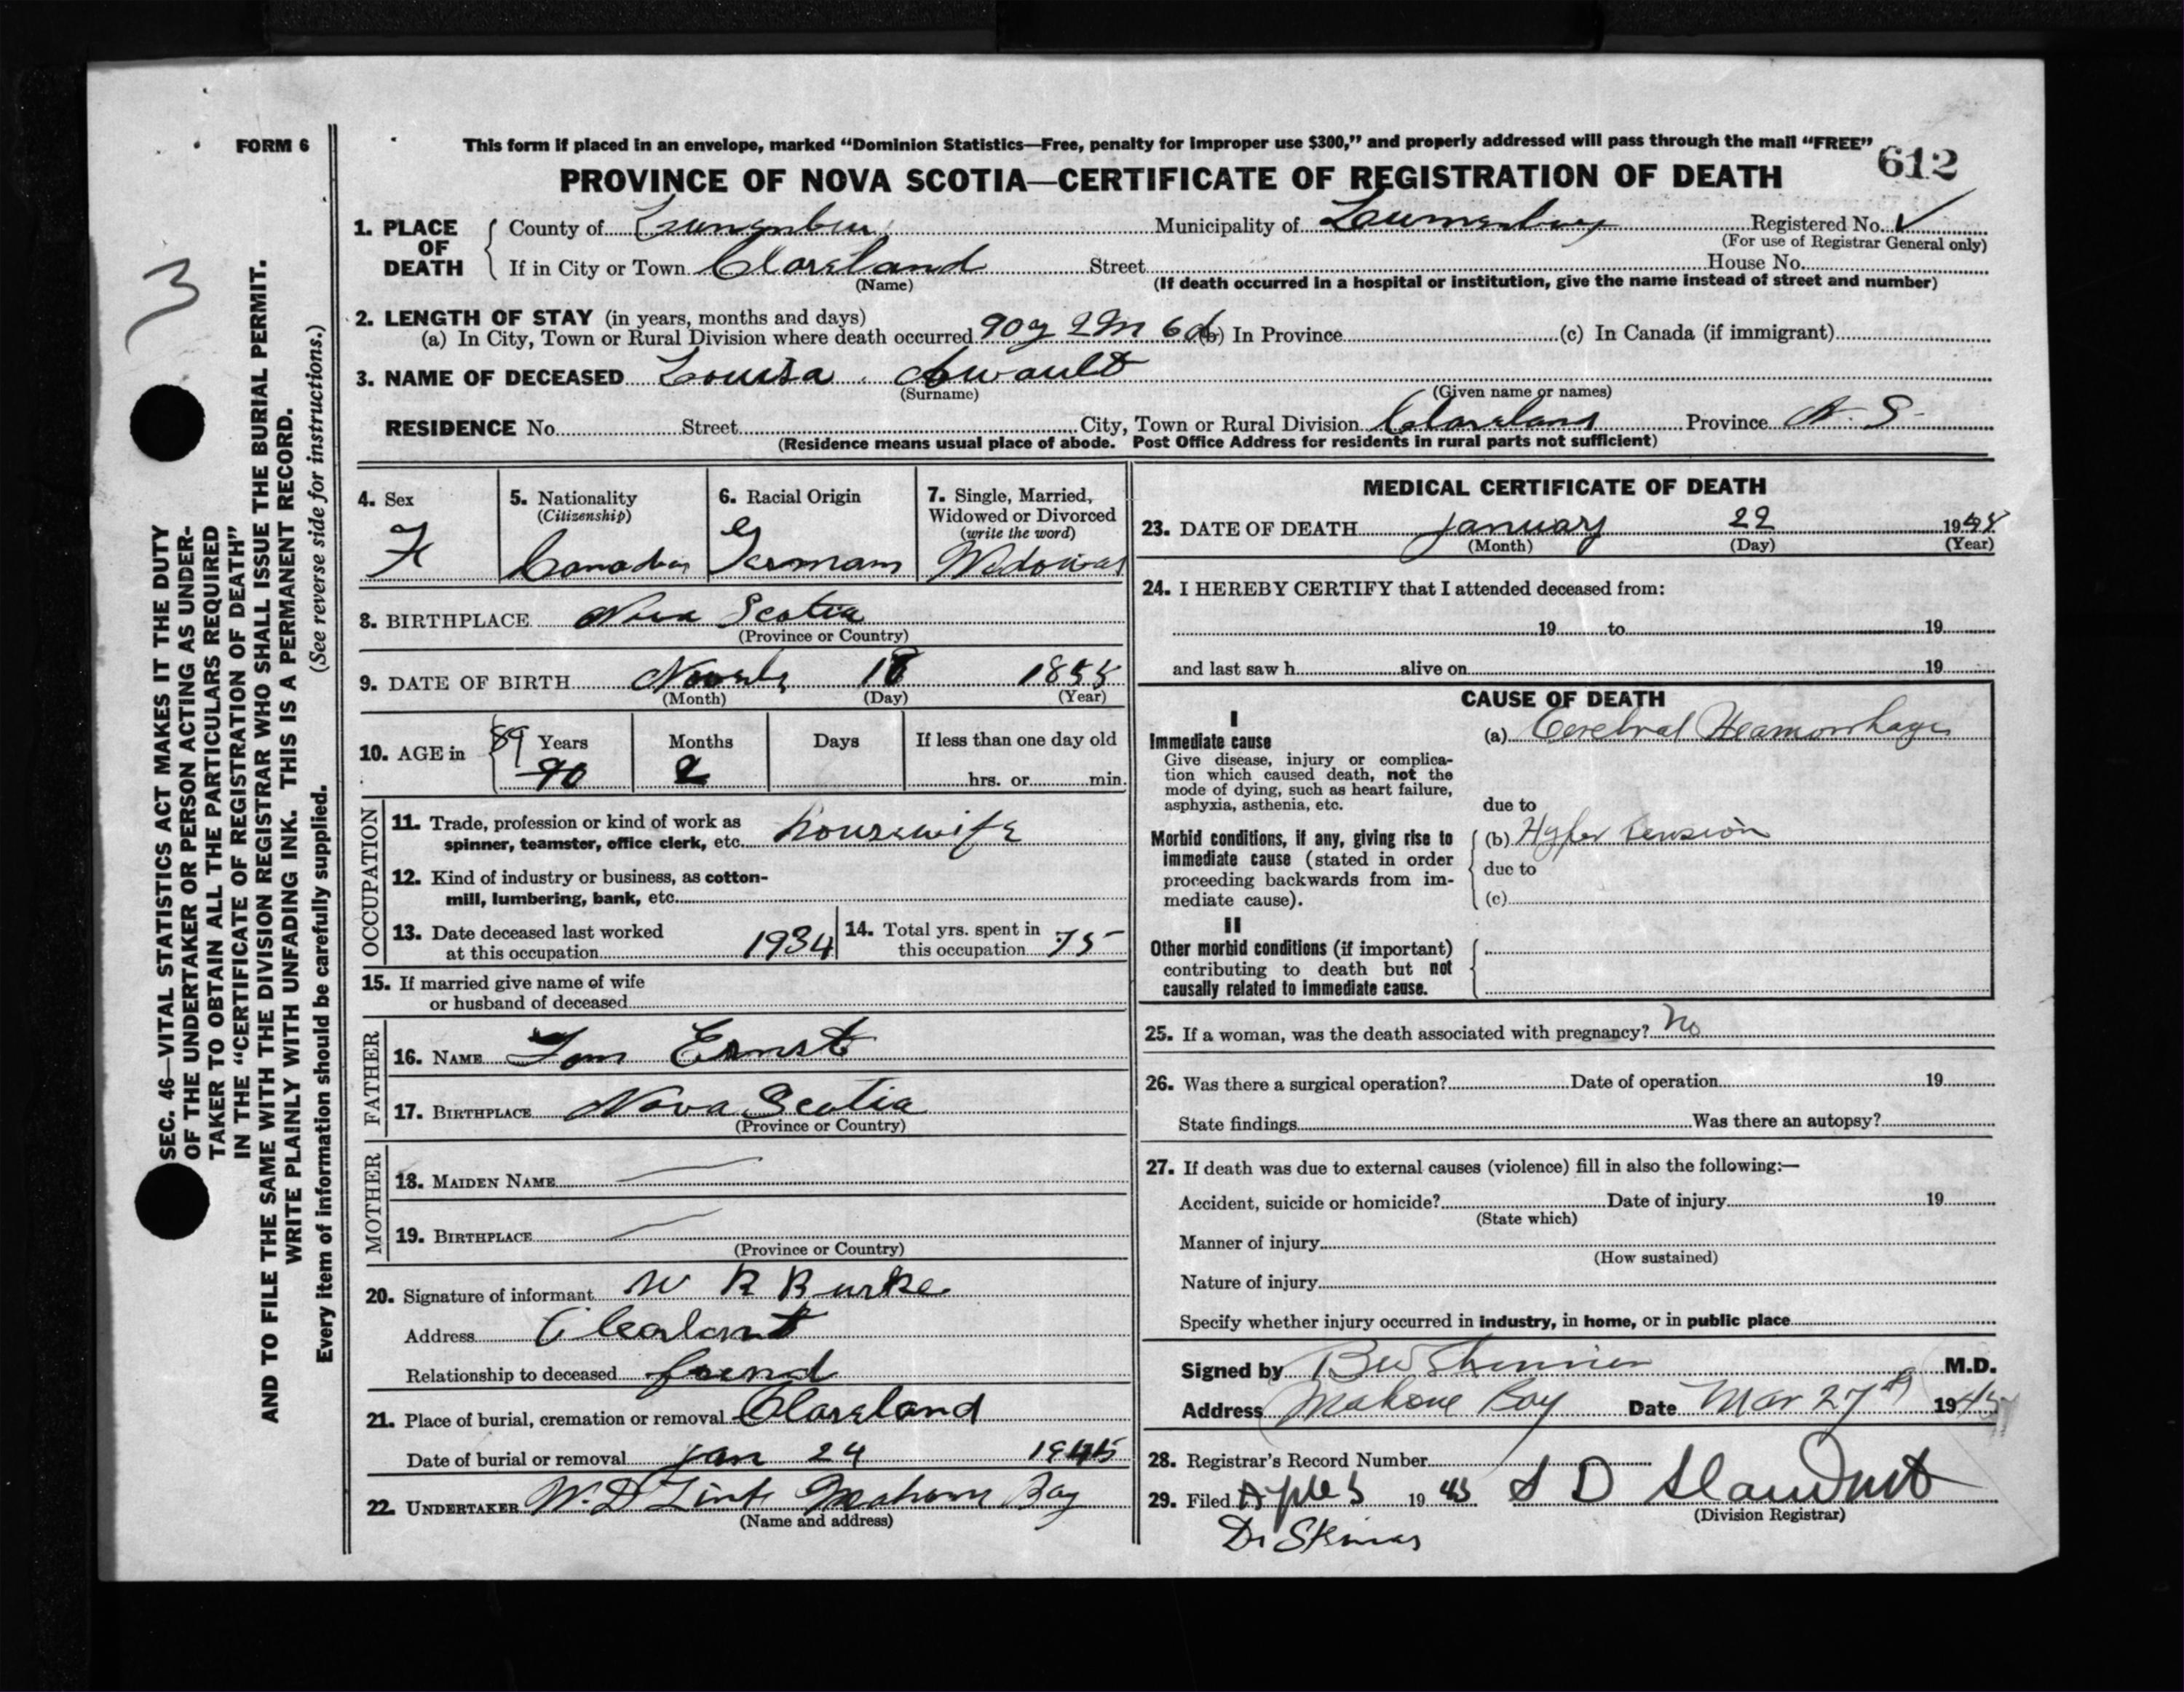 FORM 6
This form if placed in an envelope, marked “Dominion Statistics—Free, penalty for improper use $300,” and properly addressed will pass through the mail “FREE”
612
PROVINCE OF NOVA SCOTIA—CERTIFICATE OF REGISTRATION OF DEATH
3
SEC. 46—VITAL STATISTICS ACT MAKES IT THE DUTY
OF THE UNDERTAKER OR PERSON ACTING AS UNDER-
TAKER TO OBTAIN ALL THE PARTICULARS REQUIRED
IN THE “CERTIFICATE OF REGISTRATION OF DEATH”
AND TO FILE THE SAME WITH THE DIVISION REGISTRAR WHO SHALL ISSUE THE BURIAL PERMIT.
WRITE PLAINLY WITH UNFADING INK. THIS IS A PERMANENT RECORD.
Every item of information should be carefully supplied. (See reverse side for instructions.)
1. PLACE OF DEATH
County of Municipality of Registered No. ✓
(For use of Registrar General only)
If in City or Town Street House No.
(Name) (If death occurred in a hospital or institution, give the name instead of street and number)
2. LENGTH OF STAY (in years, months and days)
(a) In City, Town or Rural Division where death occurred 90y 2m 6d (b) In Province (c) In Canada (if immigrant)
3. NAME OF DECEASED Louisa
(Surname) (Given name or names)
RESIDENCE No. Street City, Town or Rural Division Province N. S.
(Residence means usual place of abode. Post Office Address for residents in rural parts not sufficient)
4. Sex
F
5. Nationality
(Citizenship)
Canadian
6. Racial Origin
German
7. Single, Married,
Widowed or Divorced
(write the word)
8. BIRTHPLACE Nova Scotia
(Province or Country)
9. DATE OF BIRTH 1855
(Month) (Day) (Year)
10. AGE in 89 Years Months Days If less than one day old
90 2 hrs. or min.
OCCUPATION
11. Trade, profession or kind of work as
spinner, teamster, office clerk, etc. housewife
12. Kind of industry or business, as cotton-
mill, lumbering, bank, etc.
13. Date deceased last worked
at this occupation 1934
14. Total yrs. spent in
this occupation 75
15. If married give name of wife
or husband of deceased
FATHER
16. NAME Ernst
17. BIRTHPLACE Nova Scotia
(Province or Country)
MOTHER
18. MAIDEN NAME
19. BIRTHPLACE
(Province or Country)
20. Signature of informant W R Burke
Address
Relationship to deceased friend
21. Place of burial, cremation or removal
Date of burial or removal Jan 24 1945
22. UNDERTAKER W. D Mahone Bay
(Name and address)
MEDICAL CERTIFICATE OF DEATH
23. DATE OF DEATH January 22 19
(Month) (Day) (Year)
24. I HEREBY CERTIFY that I attended deceased from:
19 to 19
and last saw h alive on 19
CAUSE OF DEATH
I
Immediate cause
Give disease, injury or complica-
tion which caused death, not the
mode of dying, such as heart failure,
asphyxia, asthenia, etc.
(a) Cerebral Heamorrhage
due to
Morbid conditions, if any, giving rise to
immediate cause (stated in order
proceeding backwards from im-
mediate cause).
(b) Hyper tension
due to
(c)
II
Other morbid conditions (if important)
contributing to death but not
causally related to immediate cause.
25. If a woman, was the death associated with pregnancy? No
26. Was there a surgical operation? Date of operation 19
State findings Was there an autopsy?
27. If death was due to external causes (violence) fill in also the following:—
Accident, suicide or homicide? Date of injury 19
(State which)
Manner of injury
(How sustained)
Nature of injury
Specify whether injury occurred in industry, in home, or in public place
Signed by M.D.
Address Mahone Bay Date Mar 27th 1945
28. Registrar's Record Number
29. Filed 19 45 S D
(Division Registrar)
Dr